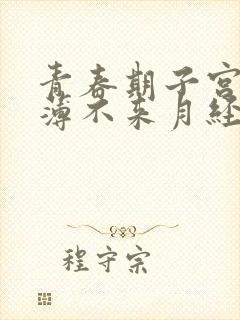 青春期子宫
薄不来月经
程守宗